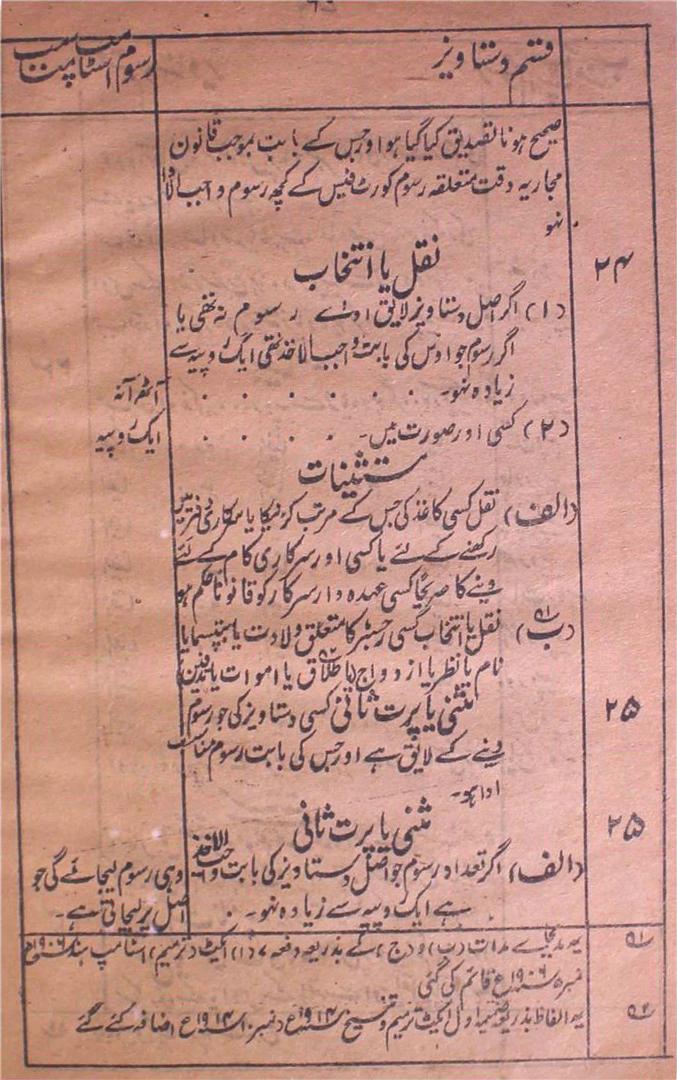 ۶۲
قسم دستاویز
رسوم اسٹامپ مناسب
صحیح ہونا تصدیق کیا گیا ہو اور جس کے بابت بموجب قانون
مجاریہ وقت متعلقہ رسوم کورٹ فیس کے کچھ رسوم واجب الادا
نہو
۲۴
نقل یا انتخاب
(۱) اگر اصل دستاویز لایق اداے رسوم نہ تھی یا
اگر رسوم جو اوس کی بابت واجب الاخذ تھی ایک روپیہ سے
زیادہ نہو۔ . . . . . . آٹھ آنہ
(۲) کسی اور صورت میں۔ . . . . ایک روپیہ
مستثنیات
(الف) نقل کسی کاغذ کی جس کے مرتب کرنیکا یا سرکاری دفتر میں
رکھنے کے لئے یا کسی اور سرکاری کام کے لئے
دینے کا صریحًا کسی عہدہ دار سرکار کو قانونًا حکم ہو
(ب)۵۱ نقل یا انتخاب کسی رجسٹر کا متعلق ولادت یا بپتسما یا
نام یا نظر یا ازدواج (یا طلاق)۵۲ یا اموات یا تدفین
۲۵
مثنی یا پرت ثانی کسی دستاویز کی جو رسوم
دینے کے لایق ہے اور جس کی بابت رسوم مناسب
ادا ہو۔
۲۵
مثنی یا پرت ثانی
(الف) اگر تعداد رسوم جو اصل دستاویز کی بابت واجب الاخذ
ہے ایک روپیہ سے زیادہ نہو۔ .
وہی رسوم لیجائے گی جو
اصل پر لیجاتی ہے۔
۵۱ یہ مد بجاے مدات (ب) و (ج) کے بذریعہ دفعہ ۷ (۱) ایکٹ (ترمیم) اسٹامپ ہند ۱۹۰۶ع
نمبر ۵ سنہ ۱۹۰۶ع قائم کی گئی
۵۲ یہ الفاظ بذریعہ ضمیمہ اول ایکٹ ترمیم و تنسیخ سنہ ۱۹۱۴ع (نمبر ۱۰ سنہ ۱۹۱۴ع) اضافہ کئے گئے